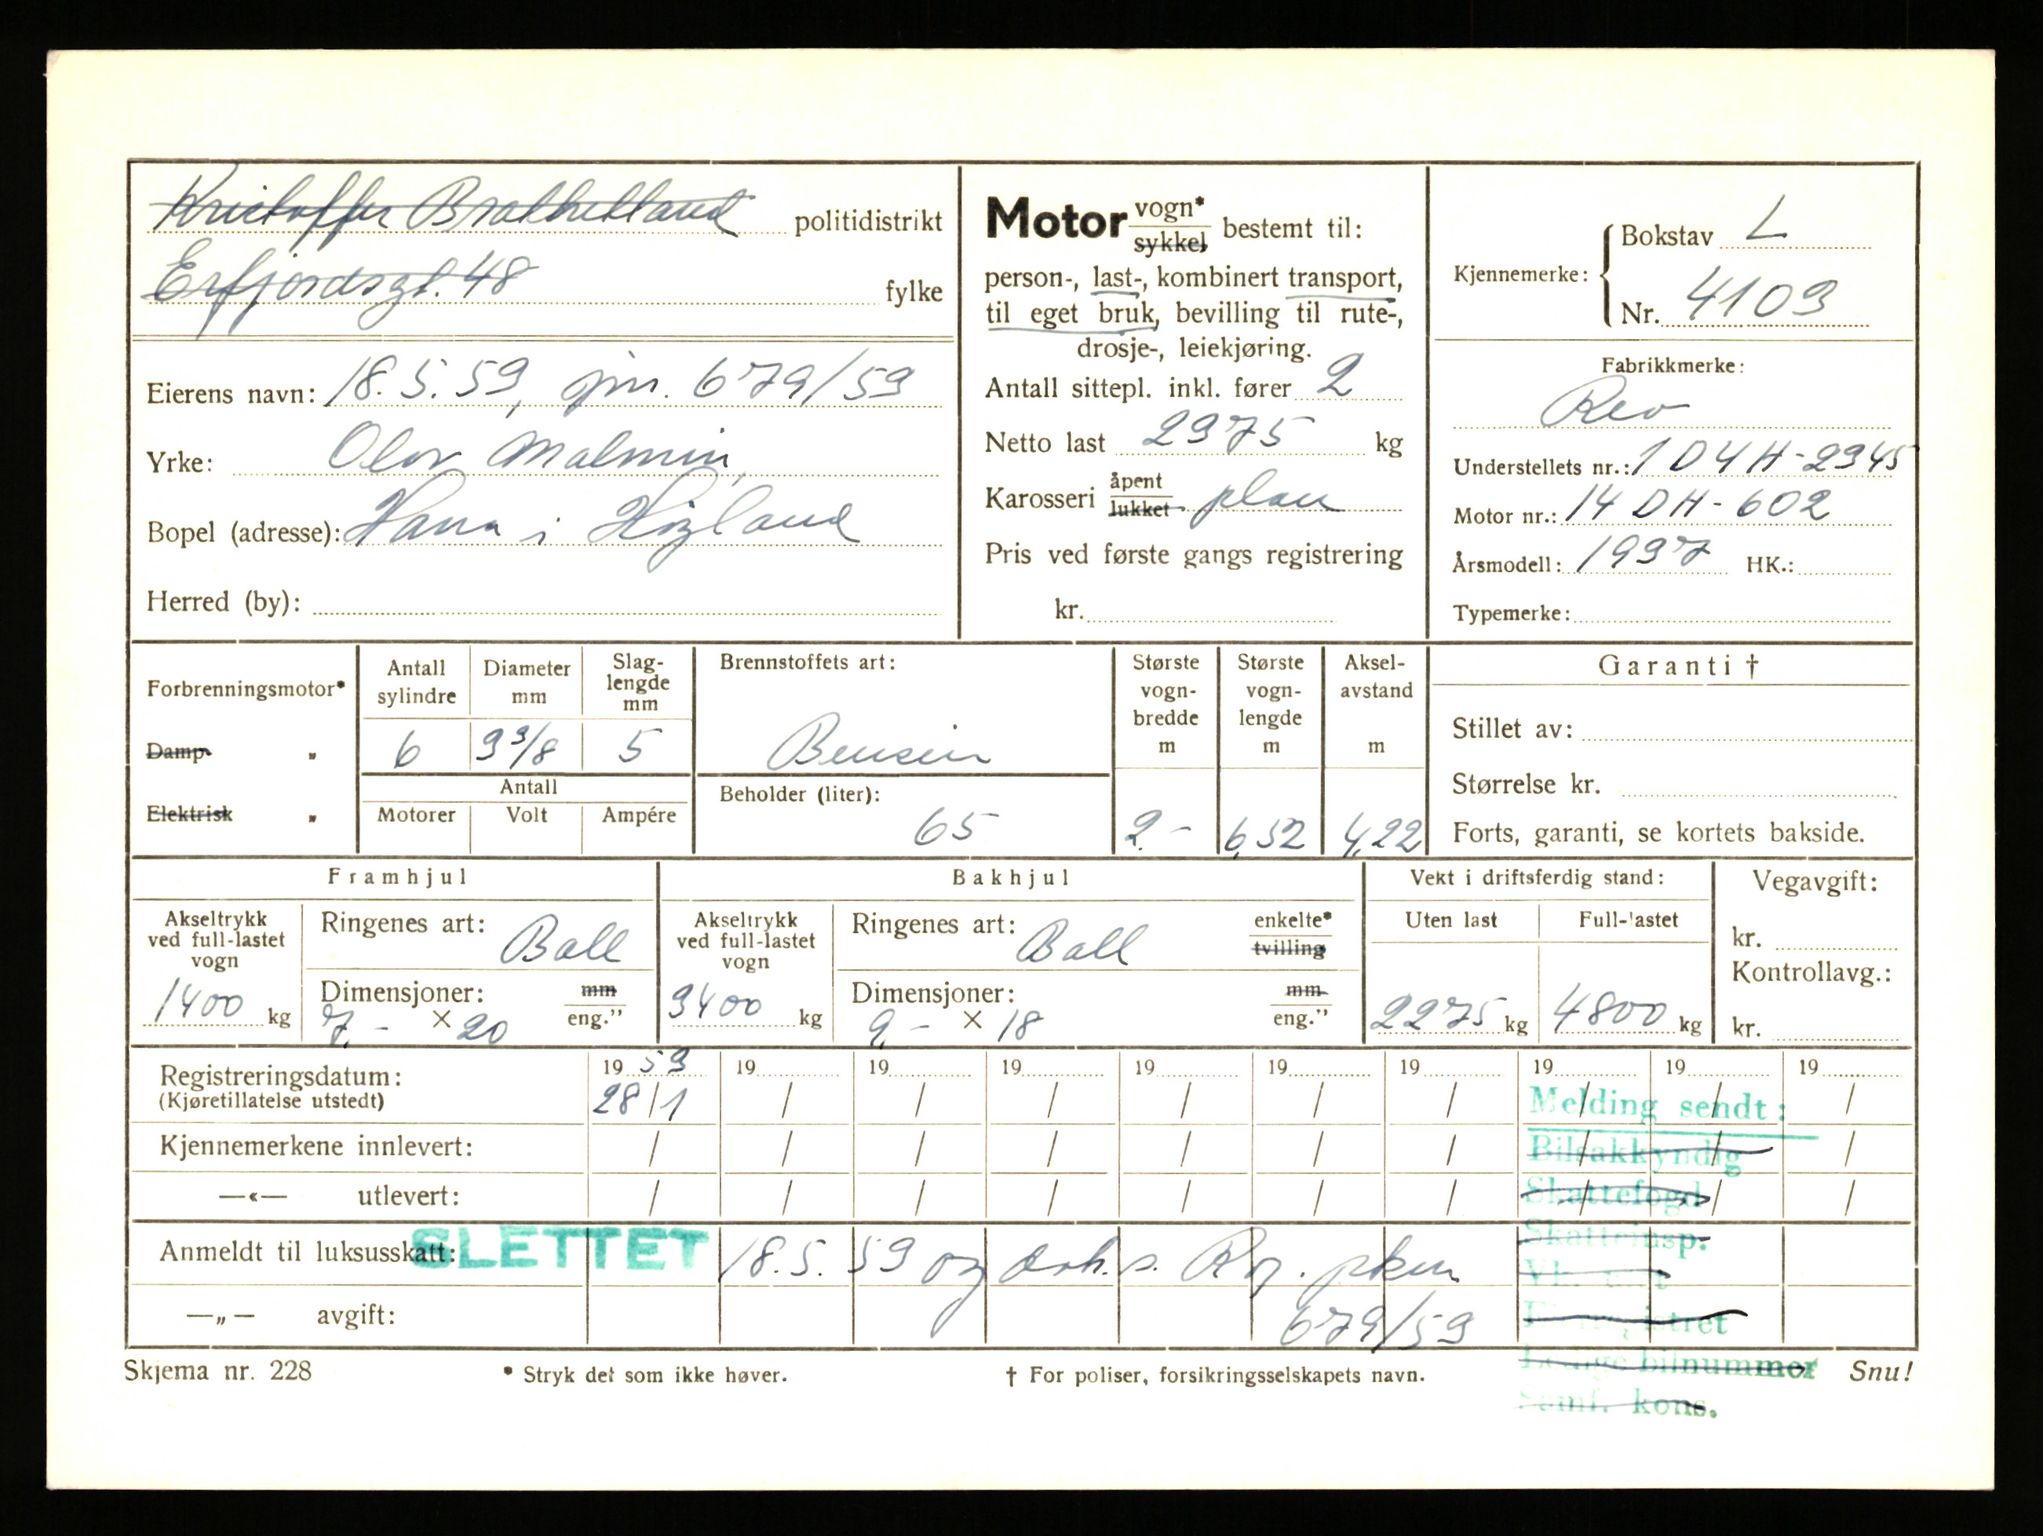 Kristoffer Brathetland politidistrikt
Erfjordsgt. 48 fylke
Eierens navn: 18.5.59, gjm. 679/59
Yrke: Olav Malmin,
Bopel (adresse): Hana i Høyland
Herred (by):
Motor vogn* sykkel bestemt til:
person-, last-, kombinert transport,
til eget bruk, bevilling til rute-,
drosje-, leiekjøring.
Antall sittepl. inkl. fører 2
Netto last 2975 kg
Karosseri åpent lukket plan
Pris ved første gangs registrering
kr.
Kjennemerke: Bokstav L
Nr. 4103
Fabrikkmerke:
Reo
Understellets nr.: 1D4H-2945
Motor nr.: 14DH-602
Årsmodell: 1937 HK.:
Typemerke:
Forbrenningsmotor*
Damp- „
Elektrisk „
Antall sylindre Diameter mm Slag-lengde mm
6 3 3/8 5
Antall
Motorer Volt Ampére
Brennstoffets art:
Bensin
Beholder (liter):
65
Største vogn-bredde m
2.-
Største vogn-lengde m
6,52
Aksel-avstand m
4,22
Garanti †
Stillet av:
Størrelse kr.
Forts, garanti, se kortets bakside.
Framhjul
Akseltrykk ved full-lastet vogn
1400 kg
Ringenes art: Ball
Dimensjoner: mm
7,- × 20 eng."
Bakhjul
Akseltrykk ved full-lastet vogn
3400 kg
Ringenes art: Ball enkelte* tvilling
Dimensjoner: mm
9,- × 18 eng."
Vekt i driftsferdig stand:
Uten last Full-lastet
2275 kg 4800 kg
Vegavgift:
kr.
Kontrollavg.:
kr.
Registreringsdatum: 19 59 19 19 19 19 19 19 19 19 19
(Kjøretillatelse utstedt) 28/1 / / / / / / / / /
Kjennemerkene innlevert: / / / / / / / / / /
—«— utlevert: / / / / / / / / / /
Anmeldt til luksusskatt: SLETTET 18.5.59 og
—„— avgift: 679/59
Melding sendt:
Bilsakkyndig
Skattefogd
Skatteinsp.
Ledige bilnummer
Samf. kons.
Skjema nr. 228 * Stryk det som ikke høver. † For poliser, forsikringsselskapets navn. Snu!